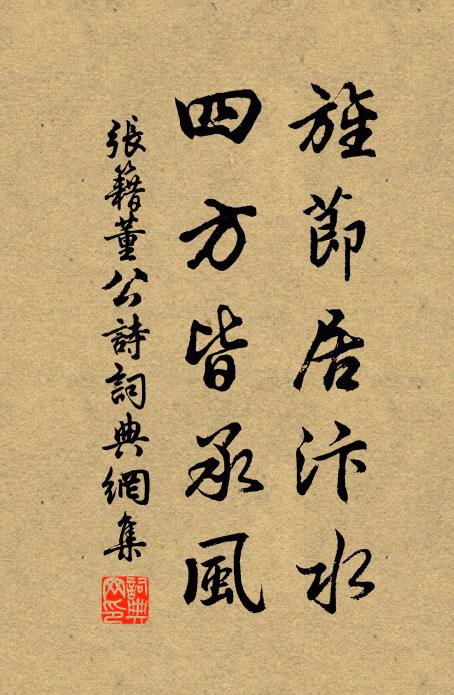 旌節居汴水
四方皆承風
張籍董公詩詞典網集
詞典網印